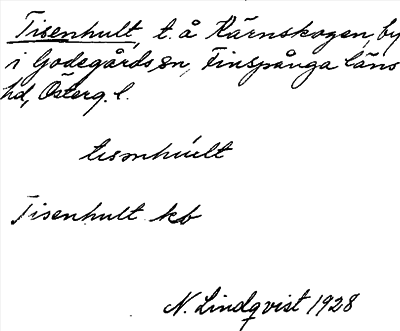 Tisenhult, t. å Kärnskogen, by
i Godegårds sn, Finspånga läns
hd, Österg. l.
tısmhu̇́lt
Tisenhult kb
N. Lindqvist 1928